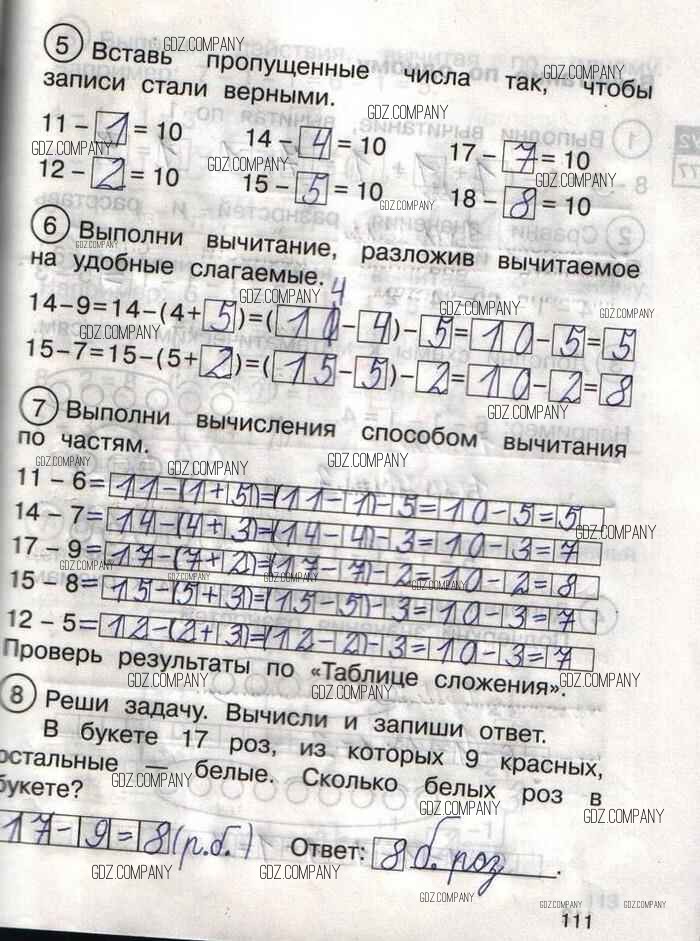 5 Вставь пропущенные числа так, чтобы
записи стали верными.
11 – 1 = 10 14 – 4 = 10 17 – 7 = 10
12 – 2 = 10 15 – 5 = 10 18 – 8 = 10
6 Выполни вычитание, разложив вычитаемое
на удобные слагаемые.
4
14–9=14–(4+5)=(10–4)–5=10–5=5
15–7=15–(5+2)=(15–5)–2=10–2=8
7 Выполни вычисления способом вычитания
по частям.
11 – 6= 11–(1+5)=(11–1)–5=10–5=5
14 – 7= 14–(4+3)=(14–4)–3=10–3=7
17 – 9= 17–(7+2)=(17–7)–2=10–2=8
15 – 8= 15–(5+3)=(15–5)–3=10–3=7
12 – 5= 12–(2+3)=(12–2)–3=10–3=7
Проверь результаты по «Таблице сложения».
8 Реши задачу. Вычисли и запиши ответ.
В букете 17 роз, из которых 9 красных,
остальные — белые. Сколько белых роз в
букете?
17–9=8(р.б.) Ответ: 8 б. роз.
111
GDZ.COMPANY